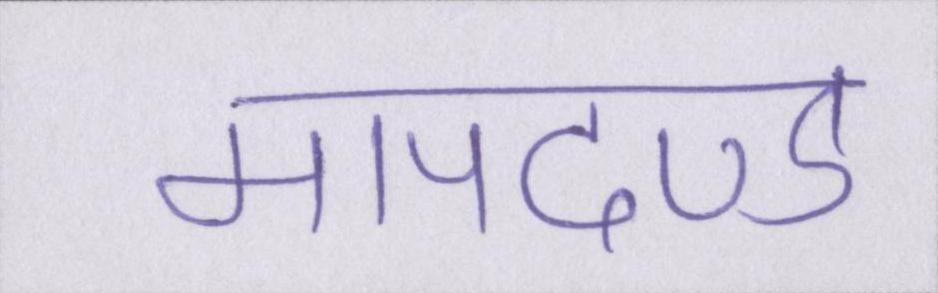 मापदण्ड